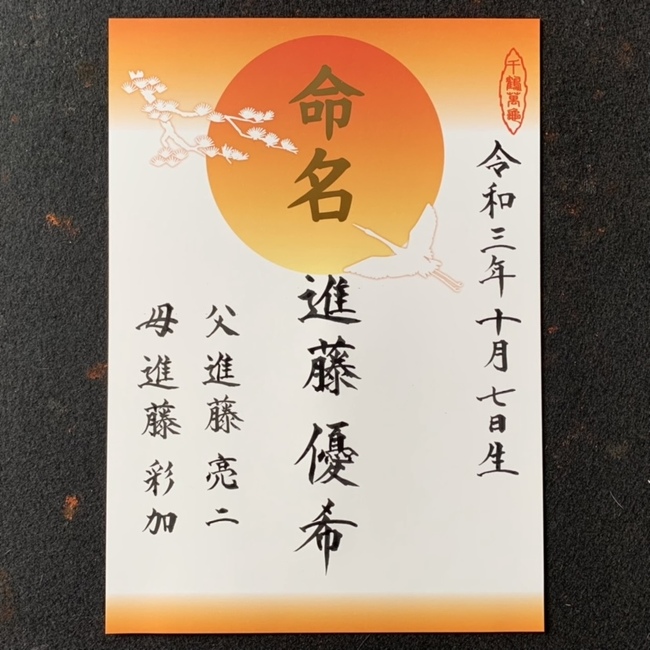 千鶴萬亀
令和三年十月七日生
命名
進藤優希
父進藤亮二
母進藤彩加